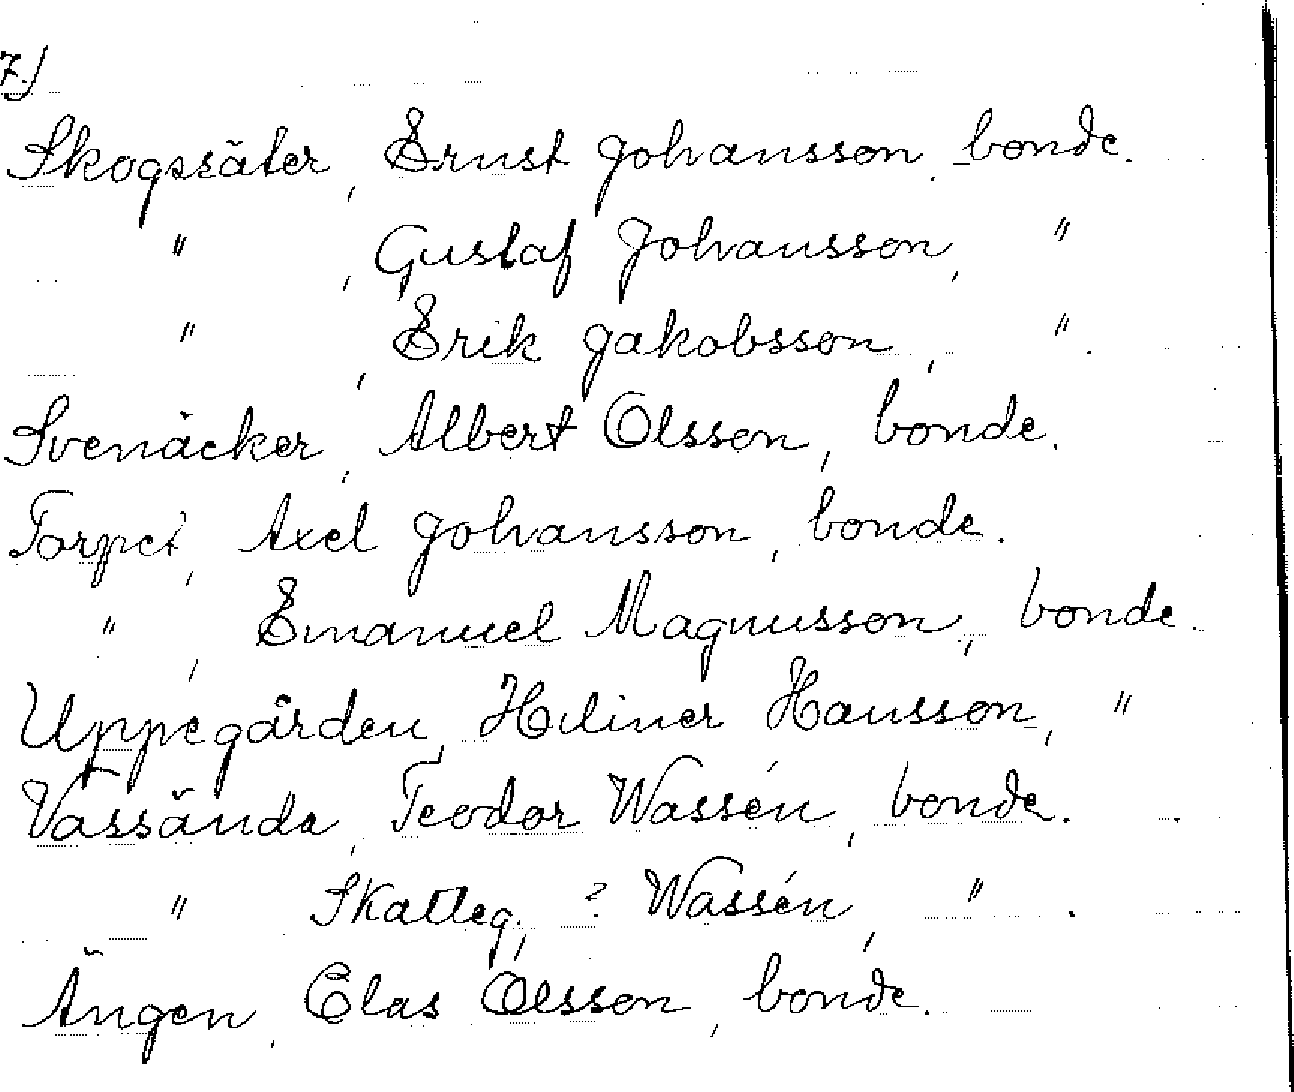 7.)
Skogssäter, Ernst Johansson, bonde.
" , Gustaf Johansson, "
" , Erik Jakobsson, " .
Svenäcker, Albert Olsson, bonde.
Torpet, Axel Johansson, bonde.
" , Emanuel Magnusson, bonde.
Uppegården, Hilmer Hansson, "
Vassända, Teodor Wassén, bonde.
" Skatteg., ? Wassén, " .
Ängen, Clas Olsson, bonde.